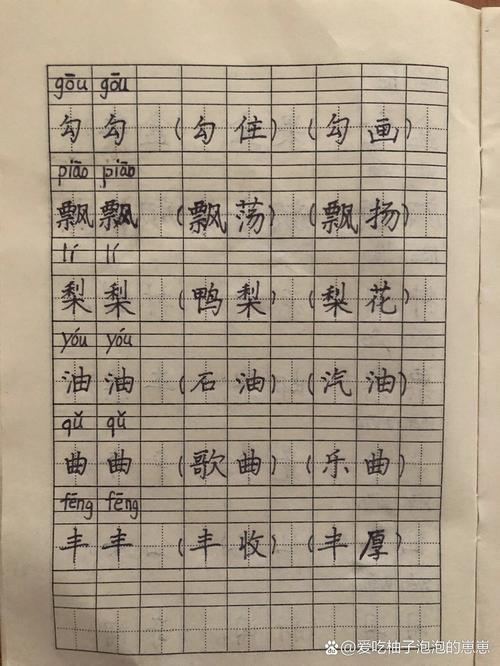 gōu gōu
勾 勾 (勾 住) (勾 画)
piāo piāo
飘 飘 (飘 荡) (飘 扬)
lí lí
梨 梨 (鸭 梨) (梨 花)
yóu yóu
油 油 (石 油) (汽 油)
qǔ qǔ
曲 曲 (歌 曲) (乐 曲)
fēng fēng
丰 丰 (丰 收) (丰 厚)
@爱吃柚子泡泡的崽崽